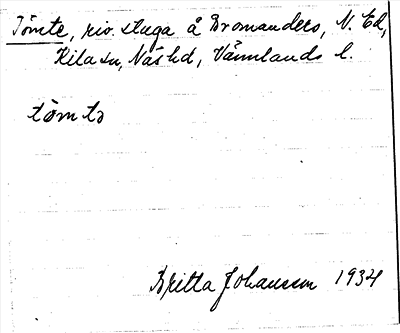 Tömte, riv. stuga å Bromanders, N. Ed,
Kila sn, Näshd, Värmlands l.
tömtə
Britta Johansson 1934